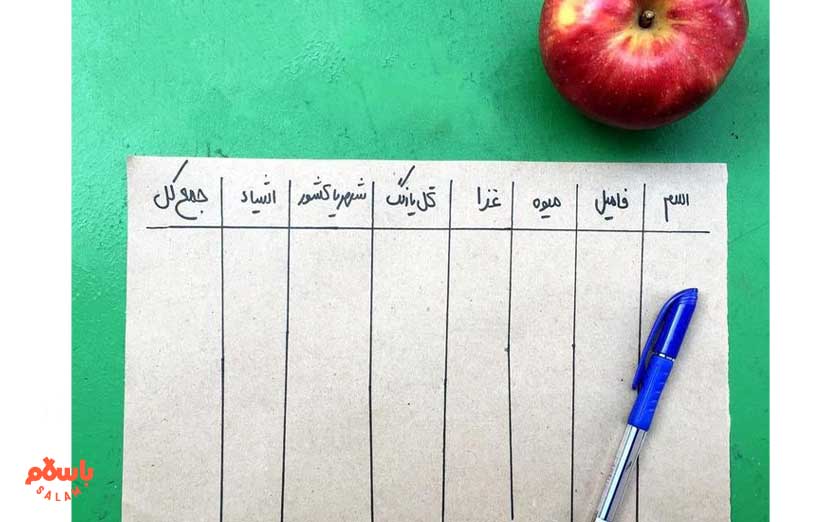 اسم فامیل میوه غذا گل یا رنگ شهر یا کشور اشیاء جمع کل
باسلام
SALAM